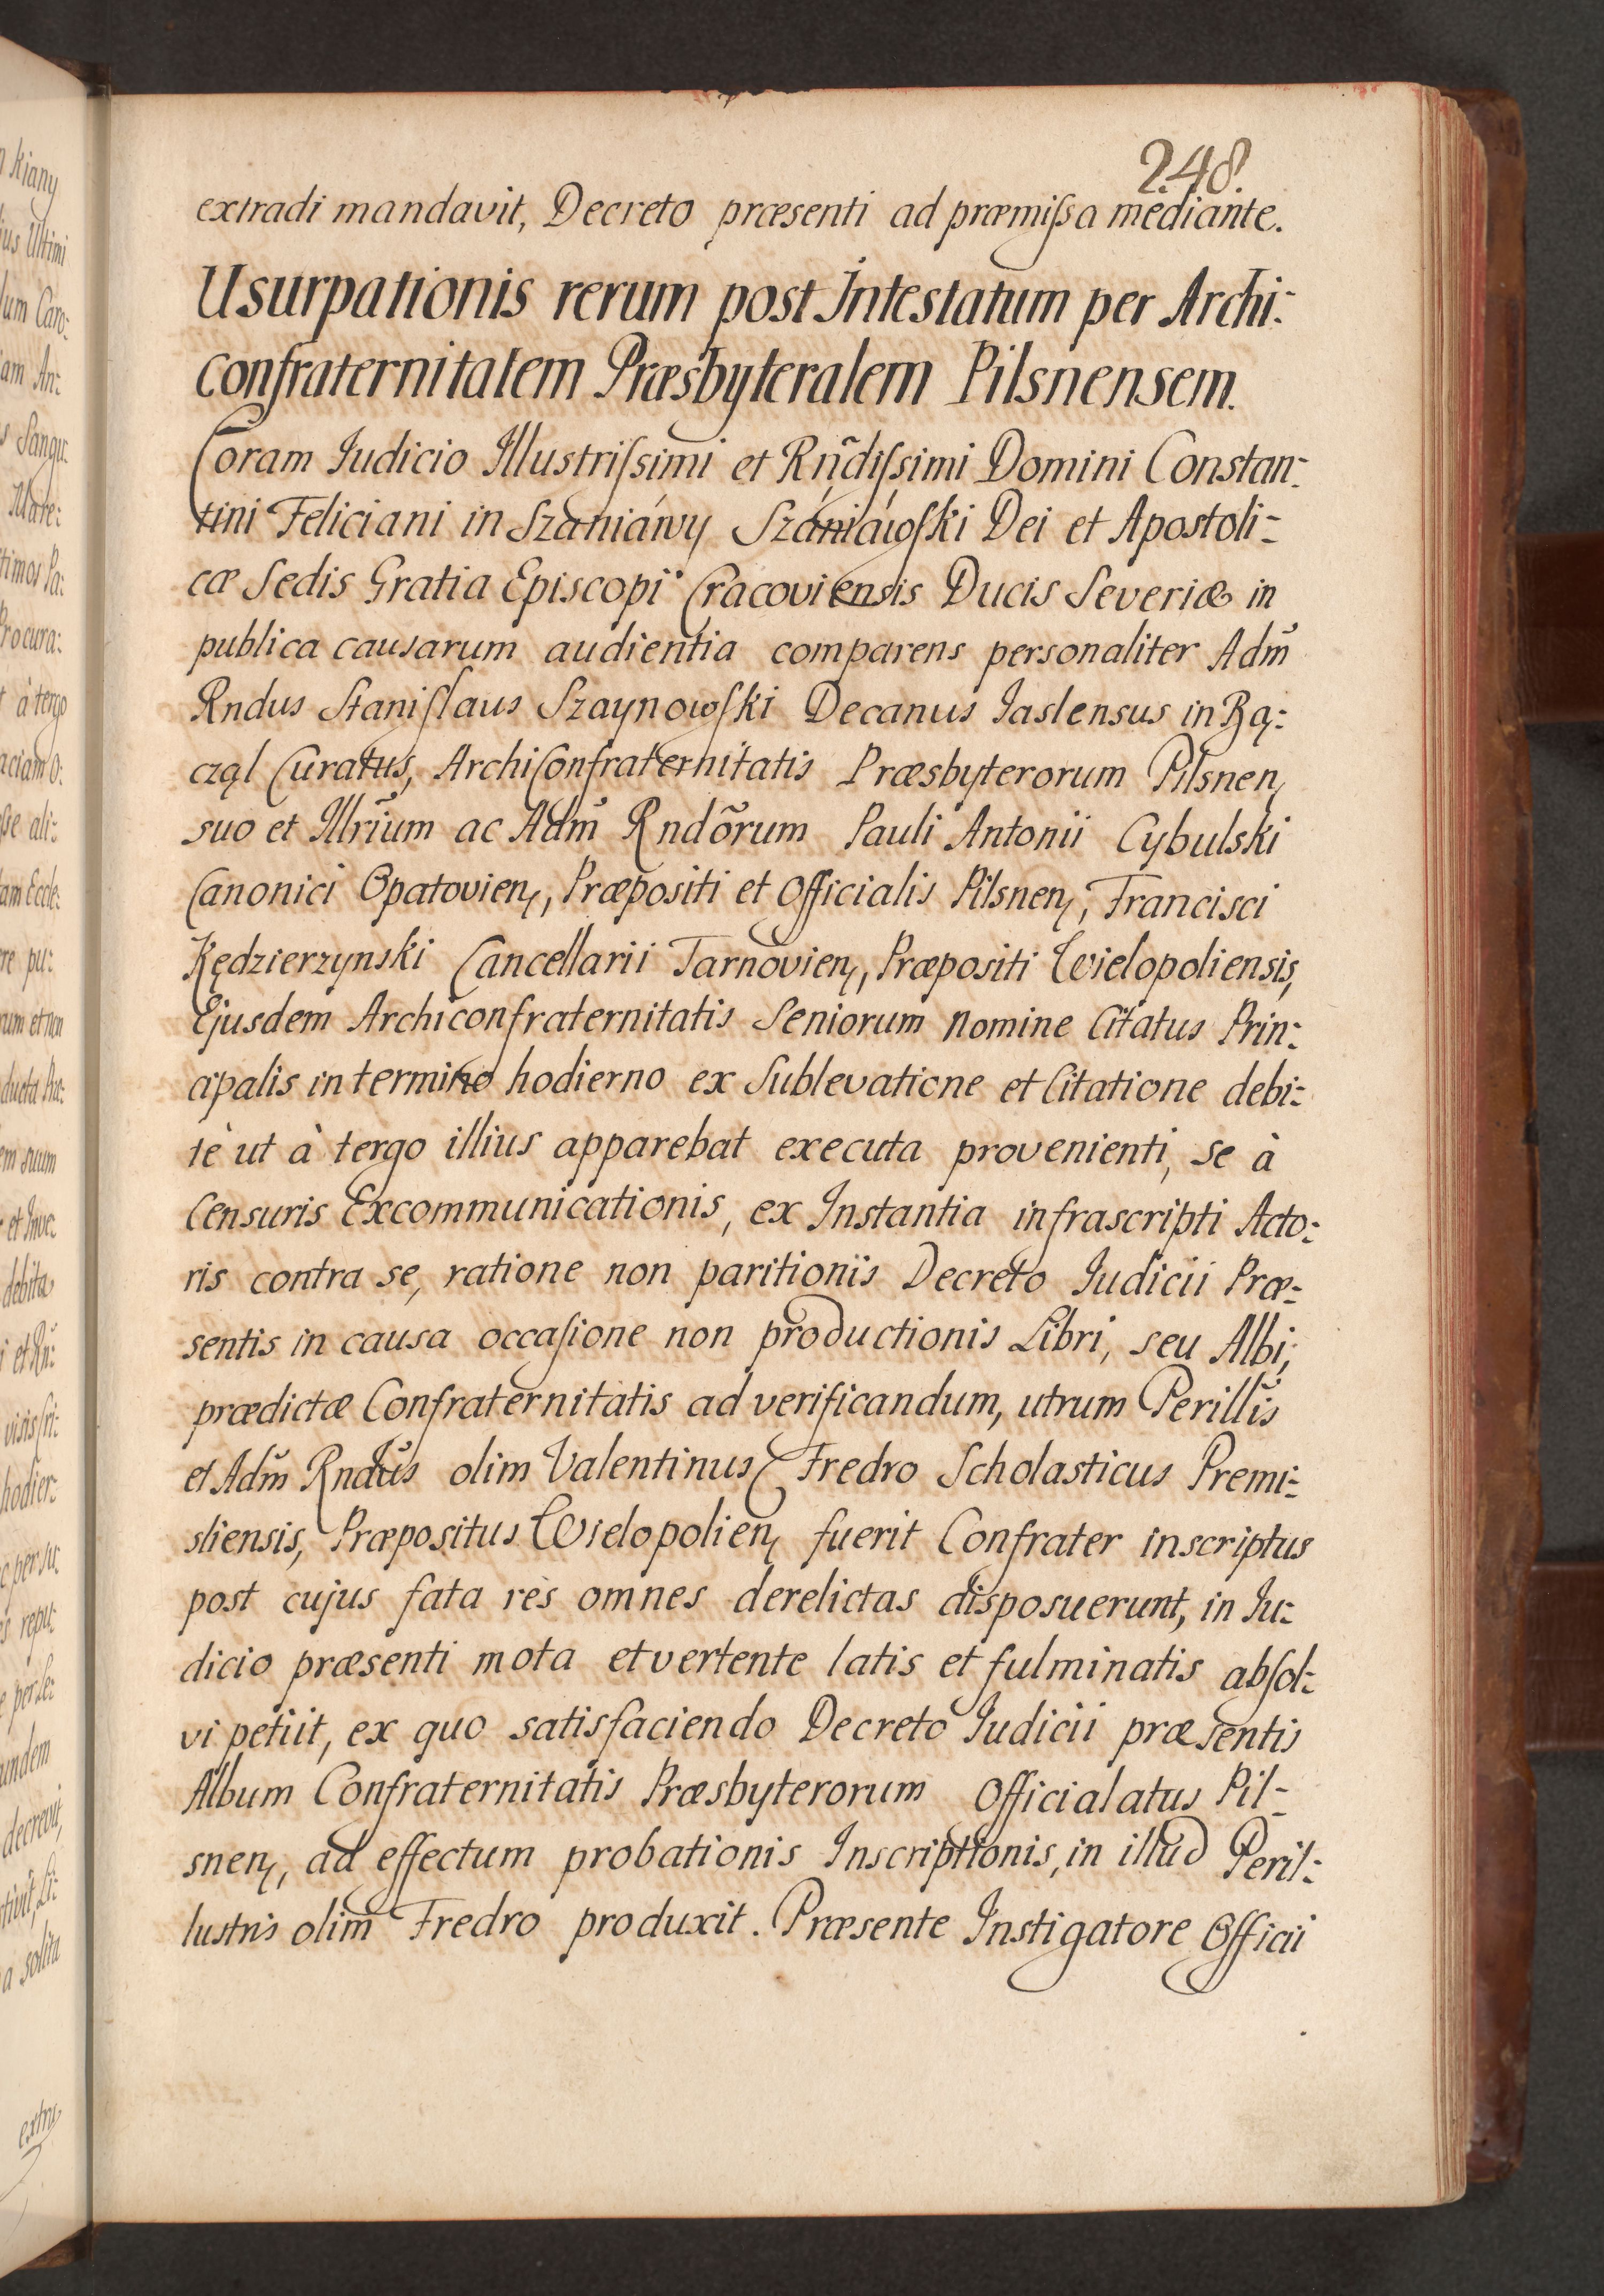 248.
extradi mandavit, Decreto præsenti ad præmiſsa mediante.
Usurpationis rerum post Intestatum per Archi:
confraternitatem Præsbyteralem Pilsnensem.
Coram Iudicio Illustriſsimi et Rñdiſsimi Domini Constan:
tini Feliciani in Szaniáwy Szániáwſki Dei et Apostoli:
cæ Sedis Gratia Episcopi Cracoviensis Ducis Severiæ in
publica causarum audientia comparens personaliter Adm̃
Rndus Staniſlaus Szaynowſki Decanus Iaslensus in Bą:
czął Curatus, ArchiConfraternitatis Præsbyterorum Pilsnen,
suo et Illrĩum ac Adm̃ Rndõrum Pauli Antonii Cybulski
Canonici Opatovien, Præpositi et Officialis Pilsnen, Francisci
Kędzierzynski Cancellarii Tarnovien, Præpositi Wielopoliensis,
Ejusdem Archiconfraternitatis Seniorum nomine Citatus Prin:
cipalis in termino hodierno ex Sublevatione et Citatione debi:
tè ut à tergo illius apparebat executa provenienti, se à
Censuris Excommunicationis, ex Instantia infrascripti Acto:
ris contra se, ratione non paritionis Decreto Iudicii Præ:
sentis in causa occaſione non productionis Libri, seu Albi,
prædictæ Confraternitatis ad verificandum, utrum Perillũs
et Adm̃ Rndũs olim Valentinus Fredro Scholasticus Premi:
sliensis, Præpositus Wielopolien, fuerit Confrater inscriptus
post cujus fata rès omnes derelictas disposuerunt, in Iu:
dicio præsenti mota et vertente latis et fulminatis abſol:
vi petiit, ex quo satisfaciendo Decreto Iudicii præsentis
Album Confraternitatis Præsbyterorum Officialatus Pil:
snen, ad effectum probationis Inscriptionis, in illud Peril:
lustris olim Fredro produxit. Præsente Instigatore Officii